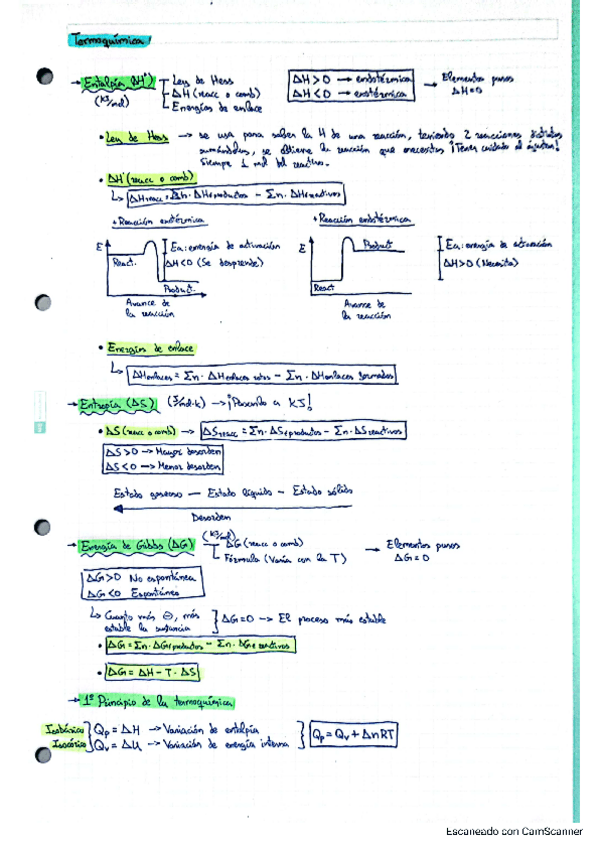 Termoquímica
→ Entalpía (ΔH°) – Ley de Hess
(KJ/mol) – ΔH (reacc o comb)
– Energías de enlace
ΔH > 0 → endotérmica
ΔH < 0 → exotérmica
→ Elementos puros
ΔH=0
• Ley de Hess → se usa para saber la H de una reacción, teniendo 2 reacciones distintas
sumándolas, se obtiene la reacción que necesitas ¡Tener cuidado al ajustar!
Siempre 1 mol del reactivo.
• ΔH°(reacc o comb)
↳ ΔHreacc = Σn · ΔHf productos − Σn · ΔHf reactivos
* Reacción exotérmica
E
React.
Product.
Avance de
la reacción
Ea: energía de activación
ΔH<0 (Se desprende)
* Reacción endotérmica
E
Product
React
Avance de
la reacción
Ea: energía de activación
ΔH>0 (Necesita)
• Energías de enlace
↳ ΔHenlaces = Σn · ΔHenlaces rotos − Σn · ΔHenlaces formados
→ Entropía (ΔS) (J/mol·k) → ¡Pasarlo a KJ!
• ΔS (reacc o comb) → ΔSreacc = Σn · ΔSf productos − Σn · ΔS reactivos
ΔS>0 → Mayor desorden
ΔS<0 → Menor desorden
Estado gaseoso — Estado líquido — Estado sólido
Desorden
→ Energía de Gibbs (ΔG) (KJ/mol) ΔG (reacc o comb)
Fórmula (Varía con la T)
→ Elementos puros
ΔG=0
ΔG>0 No espontánea
ΔG<0 Espontánea
↳ Cuanto más ⊖, más
estable la sustancia
ΔG=0 → El proceso más estable
• ΔG = Σn · ΔGf productos − Σn · ΔGf reactivos
• ΔG = ΔH − T · ΔS
→ 1º Principio de la termoquímica
Isobárico } Qp = ΔH → Variación de entalpía
Isocórico } Qv = ΔU → Variación de energía interna
Qp = Qv + ΔnRT
Escaneado con CamScanner